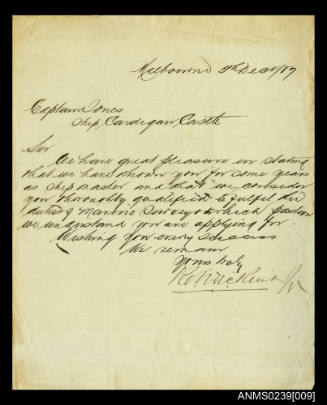 Melbourne 5th Dec 1887
Captain Jones
Ship Cardigan Castle
Sir
We have great pleasure in stating
that we have known you for some years
as ship master and that we consider
you thoroughly qualified to fulfil the
duties of Marine Surveyor which position
we understand you are applying for
Wishing you every success
We remain
Yours truly
ANMS0239[009]